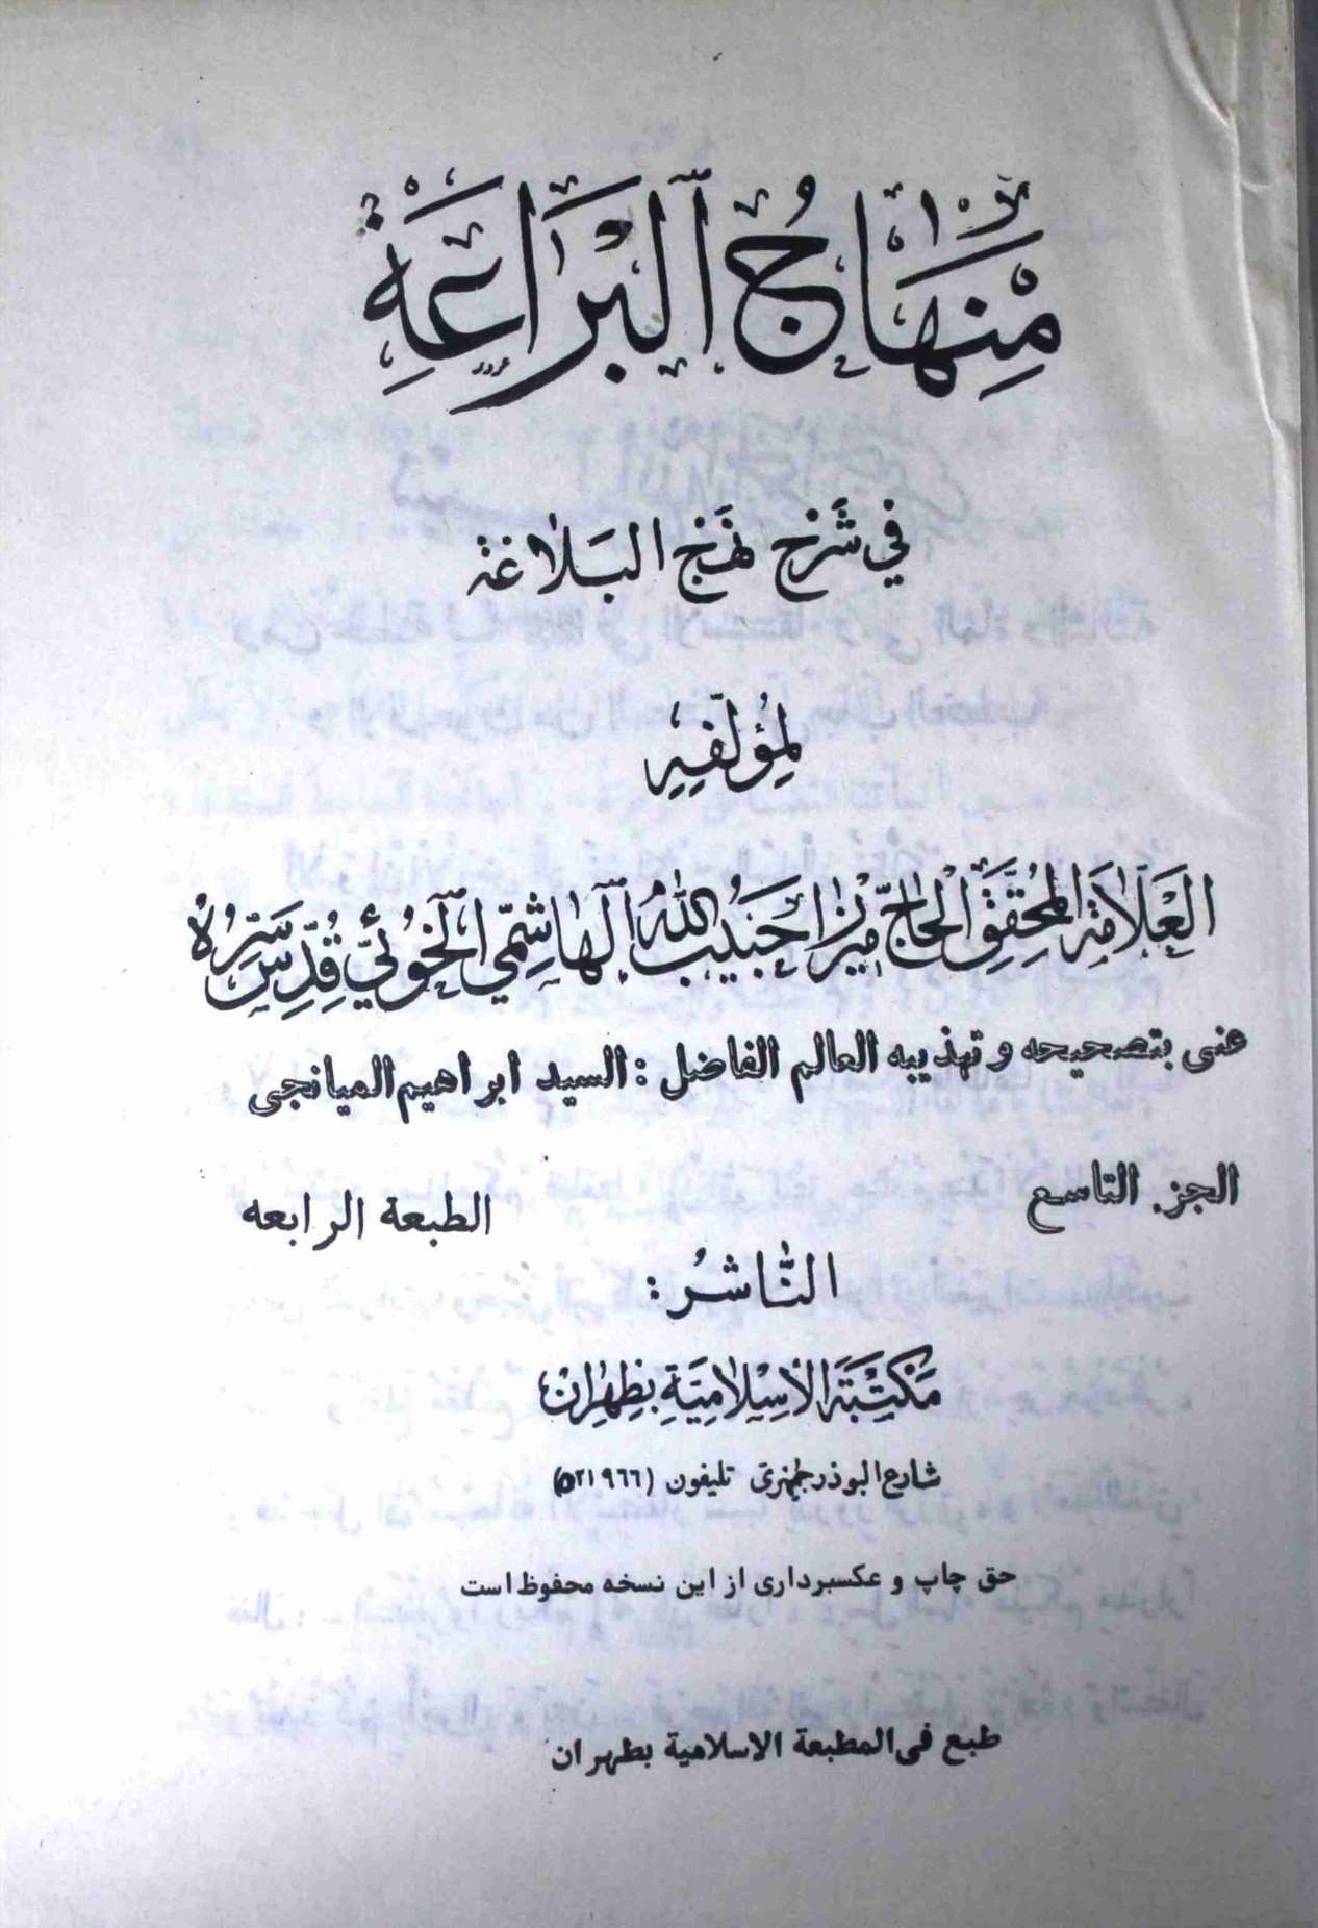 مِنْهَاجُ ٱلْبَرَاعَةِ
في شَرْحِ نَهْجِ البَلاغَة
لِمُؤلِّفِهِ
العَلّامَةِ المُحَقِّقِ الحَاجّ مِيرزا حَبيبِ اللهِ الهاشِمِي الخوئيّ قُدِّسَ سِرُّهُ
عنى بتصحيحه وتهذيبه العالم الفاضل : السيد ابراهيم الميانجى
الجزء التاسع
الطبعة الرابعه
النَّاشرُ :
مَكْتَبَةُ الإسْلامِيَّةِ بِطِهْرانْ
شارع البوذرجمهرى تليفون (٥٢١٩٦٦)
حق چاپ و عکسبرداری از این نسخه محفوظ است
طبع فى المطبعة الاسلامية بطهران